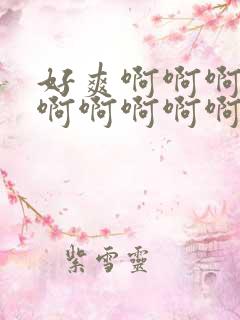 好爽啊啊啊
啊啊啊啊啊
紫雪靈